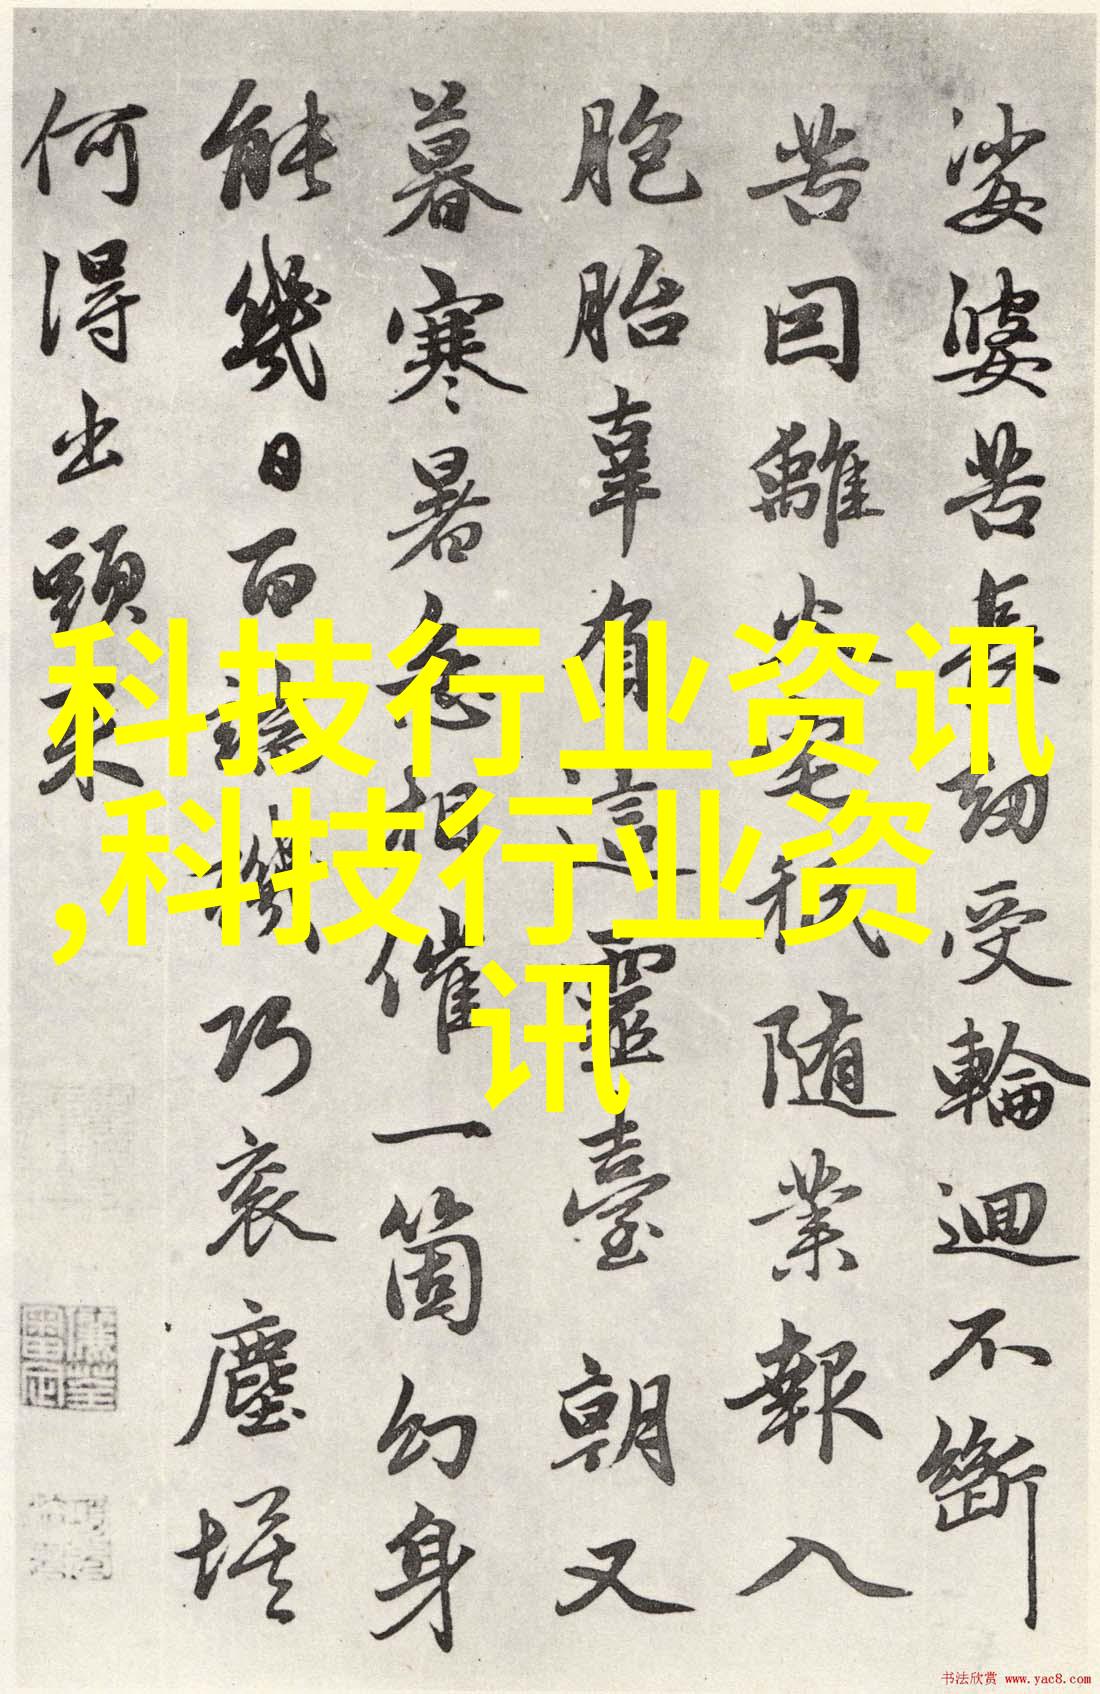 娑婆苦長劫受輪迴不斷
苦因離火宅秖随業報入
胞胎辜負這靈臺朝又
暮寒暑急相催一箇幻身
能幾日百端機巧袞塵埃
何得出頭來
科技行业资讯
,科技行业资
讯
书法欣赏 www.yac8.com